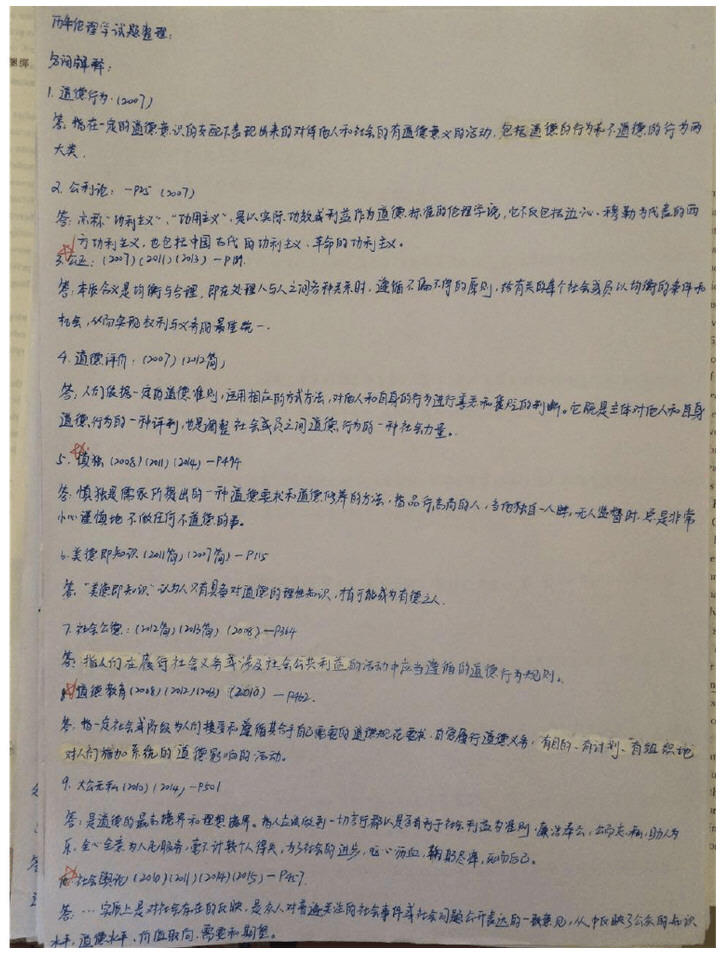 历年伦理学试题整理：
名词解释：
1. 道德行为（2007）
答：指在一定的道德意识的支配下表现出来的对待他人和社会的有道德意义的活动，包括道德的行为和不道德的行为两
大类．
2. 公利论：-P25（2007）
答：亦称“功利主义”、“功用主义”，是以实际功效或利益作为道德标准的伦理学说，它不仅包括边沁、穆勒为代表的西
方功利主义，也包括中国古代的功利主义、革命的功利主义。
3. 公正：（2007）（2011）（2013）-P
答：本质含义是均衡与合理，即在处理人与人之间各种关系时，遵循不偏不倚的原则，给有关的每个社会成员以均衡的条件和
机会，从而实现权利与义务的最佳统一．
4. 道德评价：（2007）（2012简）
答：人们依据一定的道德准则，运用相应的方式方法，对他人和自身的行为进行善恶和褒贬的判断。它既是主体对他人和自身
道德行为的一种评判，也是调整社会成员之间道德行为的一种社会力量。
5. 慎独（2008）（2011）（2014）-P494
答：慎独是儒家所提出的一种道德要求和道德修养的方法，指品行高尚的人，当他独自一人时，无人监督时，总是非常
小心谨慎地不做任何不道德的事。
6. 美德即知识（2011简）（2007简）-P115
答：“美德即知识”认为人只有具备对道德的理性知识，才有可能成为有德之人．
7. 社会公德：（2012简）（2013简）（2008）-P364
答：指人们在履行社会义务或涉及社会公共利益的活动中应当遵循的道德行为规则。
道德教育（2008）（2012）（2013）（2010）-P462.
答：指一定社会或阶级为人们接受和遵循其合乎自己需要的道德规范要求，自觉履行道德义务，有目的、有计划、有组织地
对人们施加系统的道德影响的活动。
9. 大公无私（2010）（2014）-P501
答：是道德的最高境界和理想境界。指人应该做到一切言行都以是否有利于社会利益为准则，廉洁奉公，公而忘私，助人为
乐，全心全意为人民服务，毫不计较个人得失，为了社会的进步，呕心沥血，鞠躬尽瘁，死而后已。
社会舆论（2010）（2011）（2014）（2015）-P457.
答：…实质上是对社会存在的反映，是众人对普遍关注的社会事件或社会问题公开表达的一致意见，从中反映了公众的知识
水平，道德水平，价值取向，需要和期望。